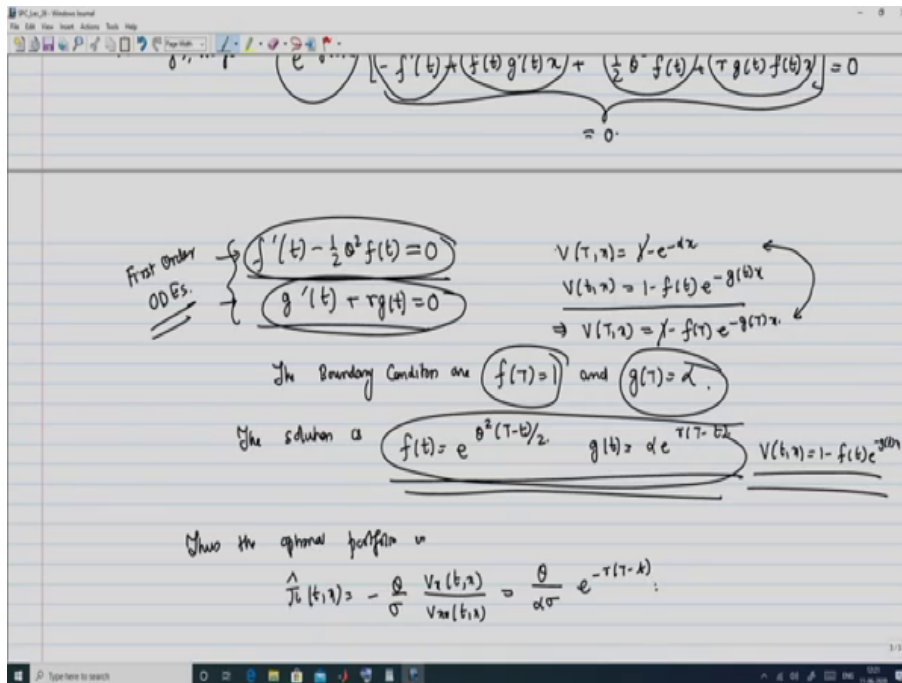 SPC_Lec_28 - Windows Journal
File Edit View Insert Actions Tools Help
Page Width
e [- f'(t) + f(t) g'(t) x + (½ θ² f(t) + r g(t) f(t) x] = 0
= 0.
First Order ODEs.
f'(t) - ½ θ² f(t) = 0
g'(t) + r g(t) = 0
V(T,x) = 1 - e^{-αx}
V(t,x) = 1 - f(t) e^{-g(t)x}
⇒ V(T,x) = 1 - f(T) e^{-g(T)x}.
The Boundary Condition are f(T) = 1 and g(T) = α.
The solution is f(t) = e^{θ²(T-t)/2} g(t) = α e^{r(T-t)} V(t,x) = 1 - f(t) e^{-g(t)x}
Thus the optimal portfolio is
π̂(t,x) = - θ/σ V_x(t,x)/V_xx(t,x) = θ/ασ e^{-r(T-t)}.
3/3
Type here to search
ENG 12:21